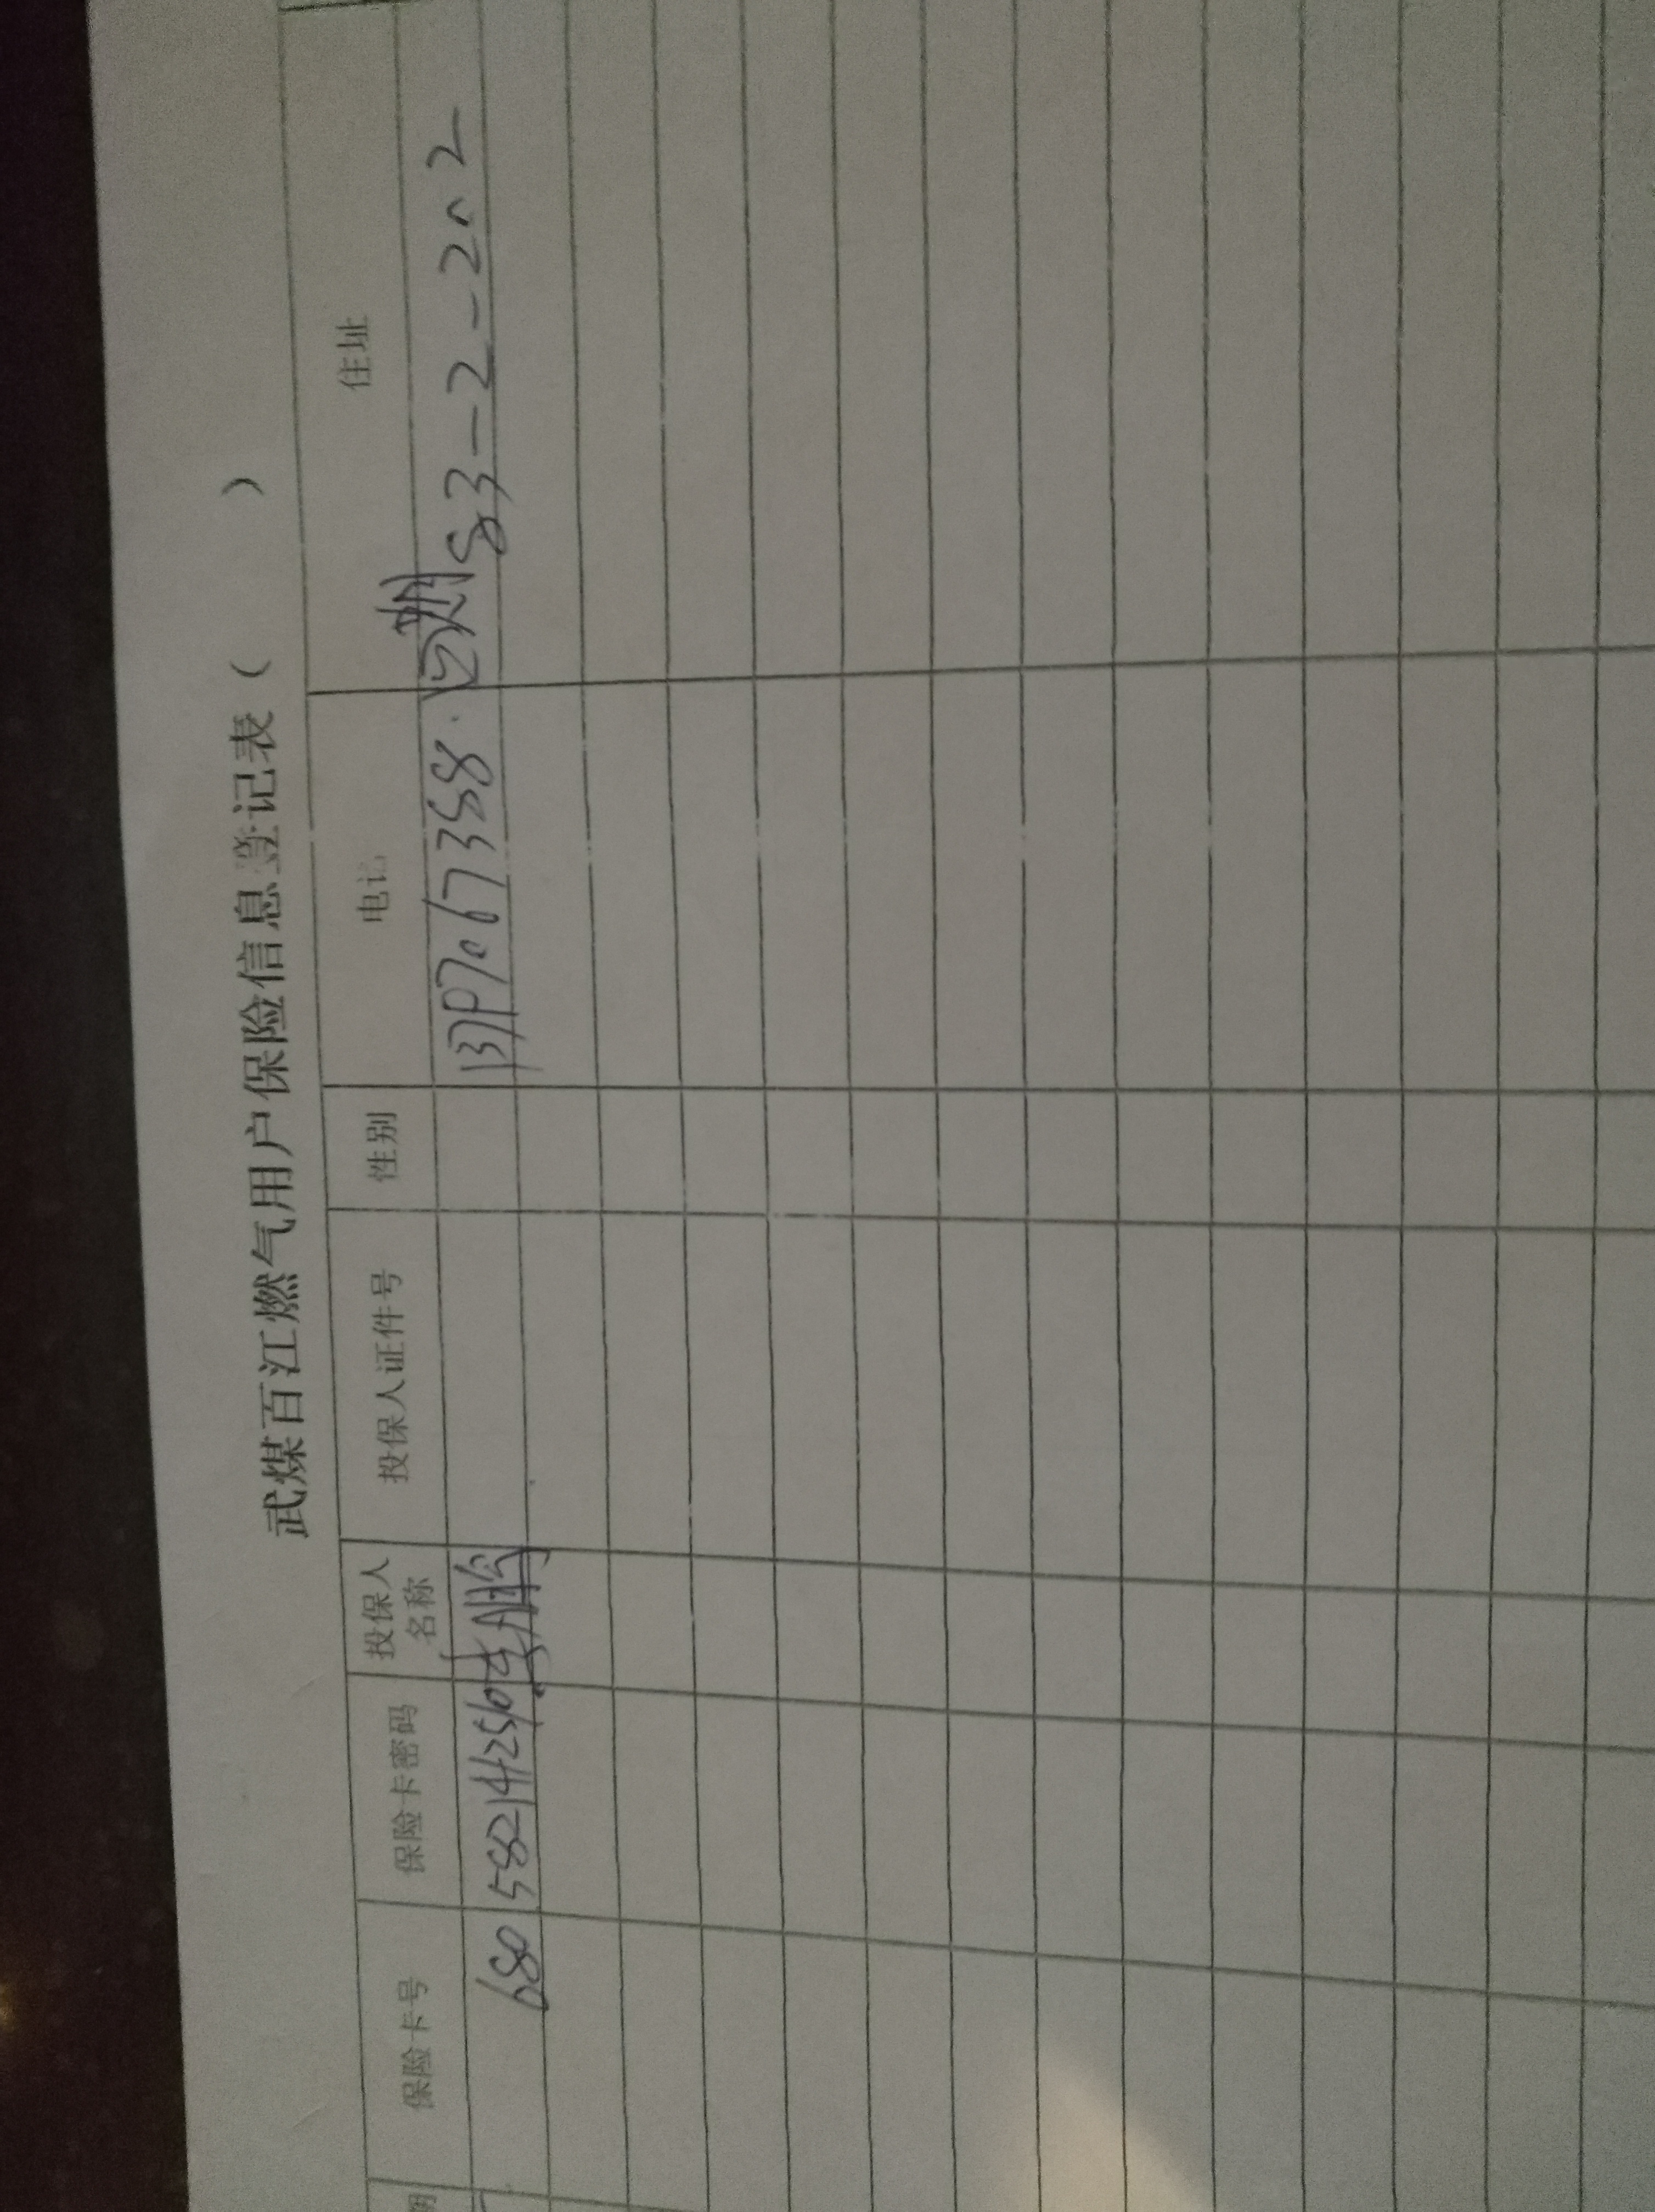 武煤百江燃气用户保险信息登记表（ ）
期 保险卡号 保险卡密码 投保人名称 投保人证件号 性别 电话 住址
680 582142510 1397067358 83-2-202